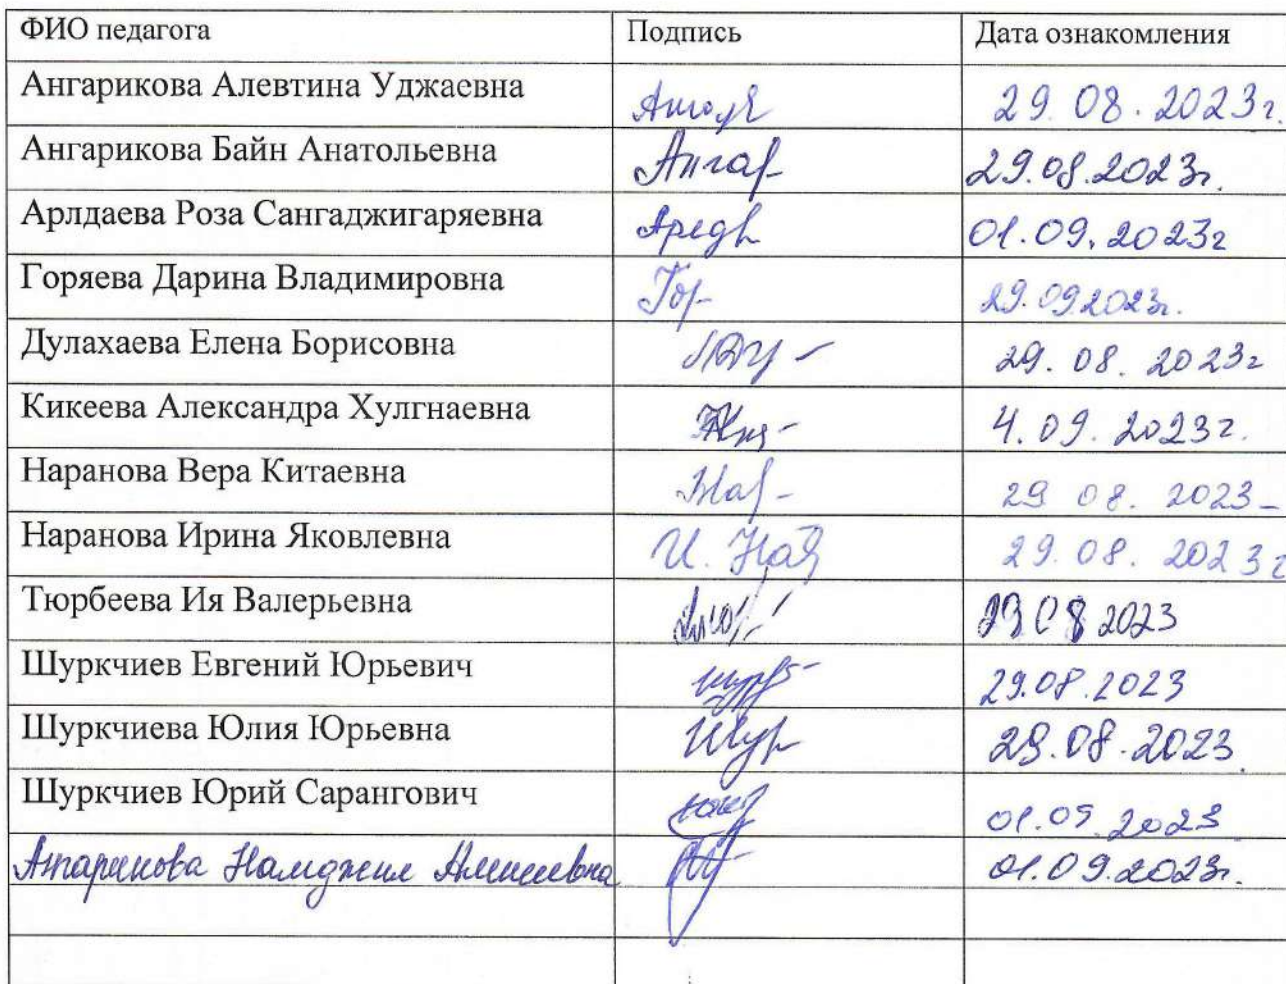 ФИО педагога Подпись Дата ознакомления
Ангарикова Алевтина Уджаевна 29.08.2023г.
Ангарикова Байн Анатольевна Ангар 29.08.2023г.
Арлдаева Роза Сангаджигаряевна 01.09.2023г
Горяева Дарина Владимировна Гор 29.09.2023г.
Дулахаева Елена Борисовна 29.08.2023г
Кикеева Александра Хулгнаевна 4.09.2023г.
Наранова Вера Китаевна 29 08. 2023
Наранова Ирина Яковлевна И. Нар 29.08.2023г
Тюрбеева Ия Валерьевна 29 08 2023
Шуркчиев Евгений Юрьевич 29.08.2023
Шуркчиева Юлия Юрьевна Шур 29.08.2023
Шуркчиев Юрий Сарангович 01.09.2023
Ангарикова 01.09.2023г.